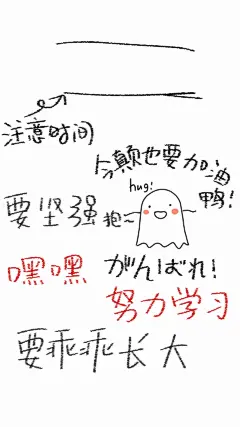 注意时间
颠也要加油
鸭!
hug!
要坚强
抱~
嘿嘿
がんばれ!
努力学习
要乖乖长大